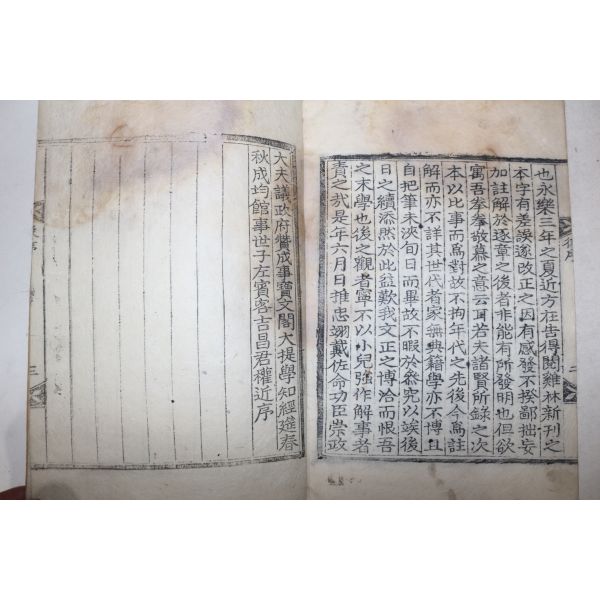 也永樂三年之夏近方在告得閱雞林新刊之
本字有差誤遂改正之因有感發不揆鄙拙妄
加註解於逐章之後者非能有所發明也但欲
寓吾拳拳敬慕之意云耳若夫諸賢所錄之次
本以比事而爲對故不拘年代之先後今爲註
解而亦不詳其世代者家無典籍學亦不博且
自把筆未浹旬日而畢故不暇於叅究以竢後
日之續添然於此益歎我文正之博洽而恨吾
之末學也後之觀者寧不以小兒强作解事者
責之哉是年六月日推忠翊戴佐命功臣崇政
大夫議政府贊成事寶文閣大提學知經筵春
秋成均館事世子左賓客吉昌君權近序